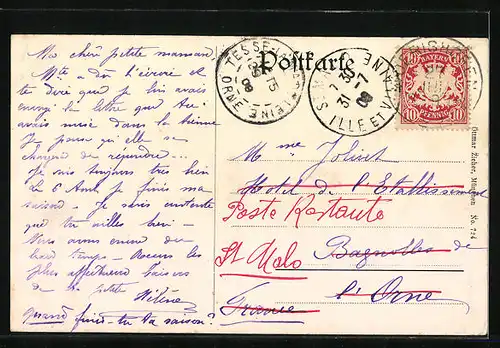 Postkarte
Ma chère petite maman
Mte a dû t'écrire et
te dire que je lui avais
envoyé la lettre que tu
avais mise dans la tienne
Je pense qu'elle se
chargea de répondre...
Je suis toujours très bien
Le 6 Août je finis ma
saison - Je serai contente
que tu
Nous avons eu du
temps - Reçois les
plus affectueux baisers
de ta petite
Hélène
Quand finis-tu ta saison?
TESSE
ORNE
15
08
ILLE ET VILAINE
31 -7
08
BAYERN
10 10
PFENNIG
Mme Jolivet
Hotel de l'Etablissement
Poste Restante
St Malo
Bagnolles de
l'Orne
France
Ottmar Zieher, München No. 724